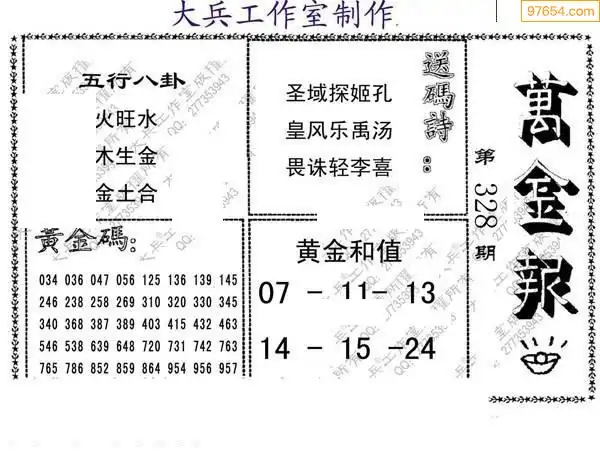 大兵工作室制作
97654.com
五行八卦
火旺水
木生金
金土合
圣域探姬孔
皇风乐禹汤
畏诛轻李喜
送碼詩:
萬金報
第328期
黃金碼:
034 036 047 056 125 136 139 145
246 238 258 269 310 320 330 345
340 368 387 389 403 415 432 463
546 538 639 648 720 731 742 763
765 786 852 859 864 954 956 957
黄金和值
07 - 11- 13
14 - 15 -24